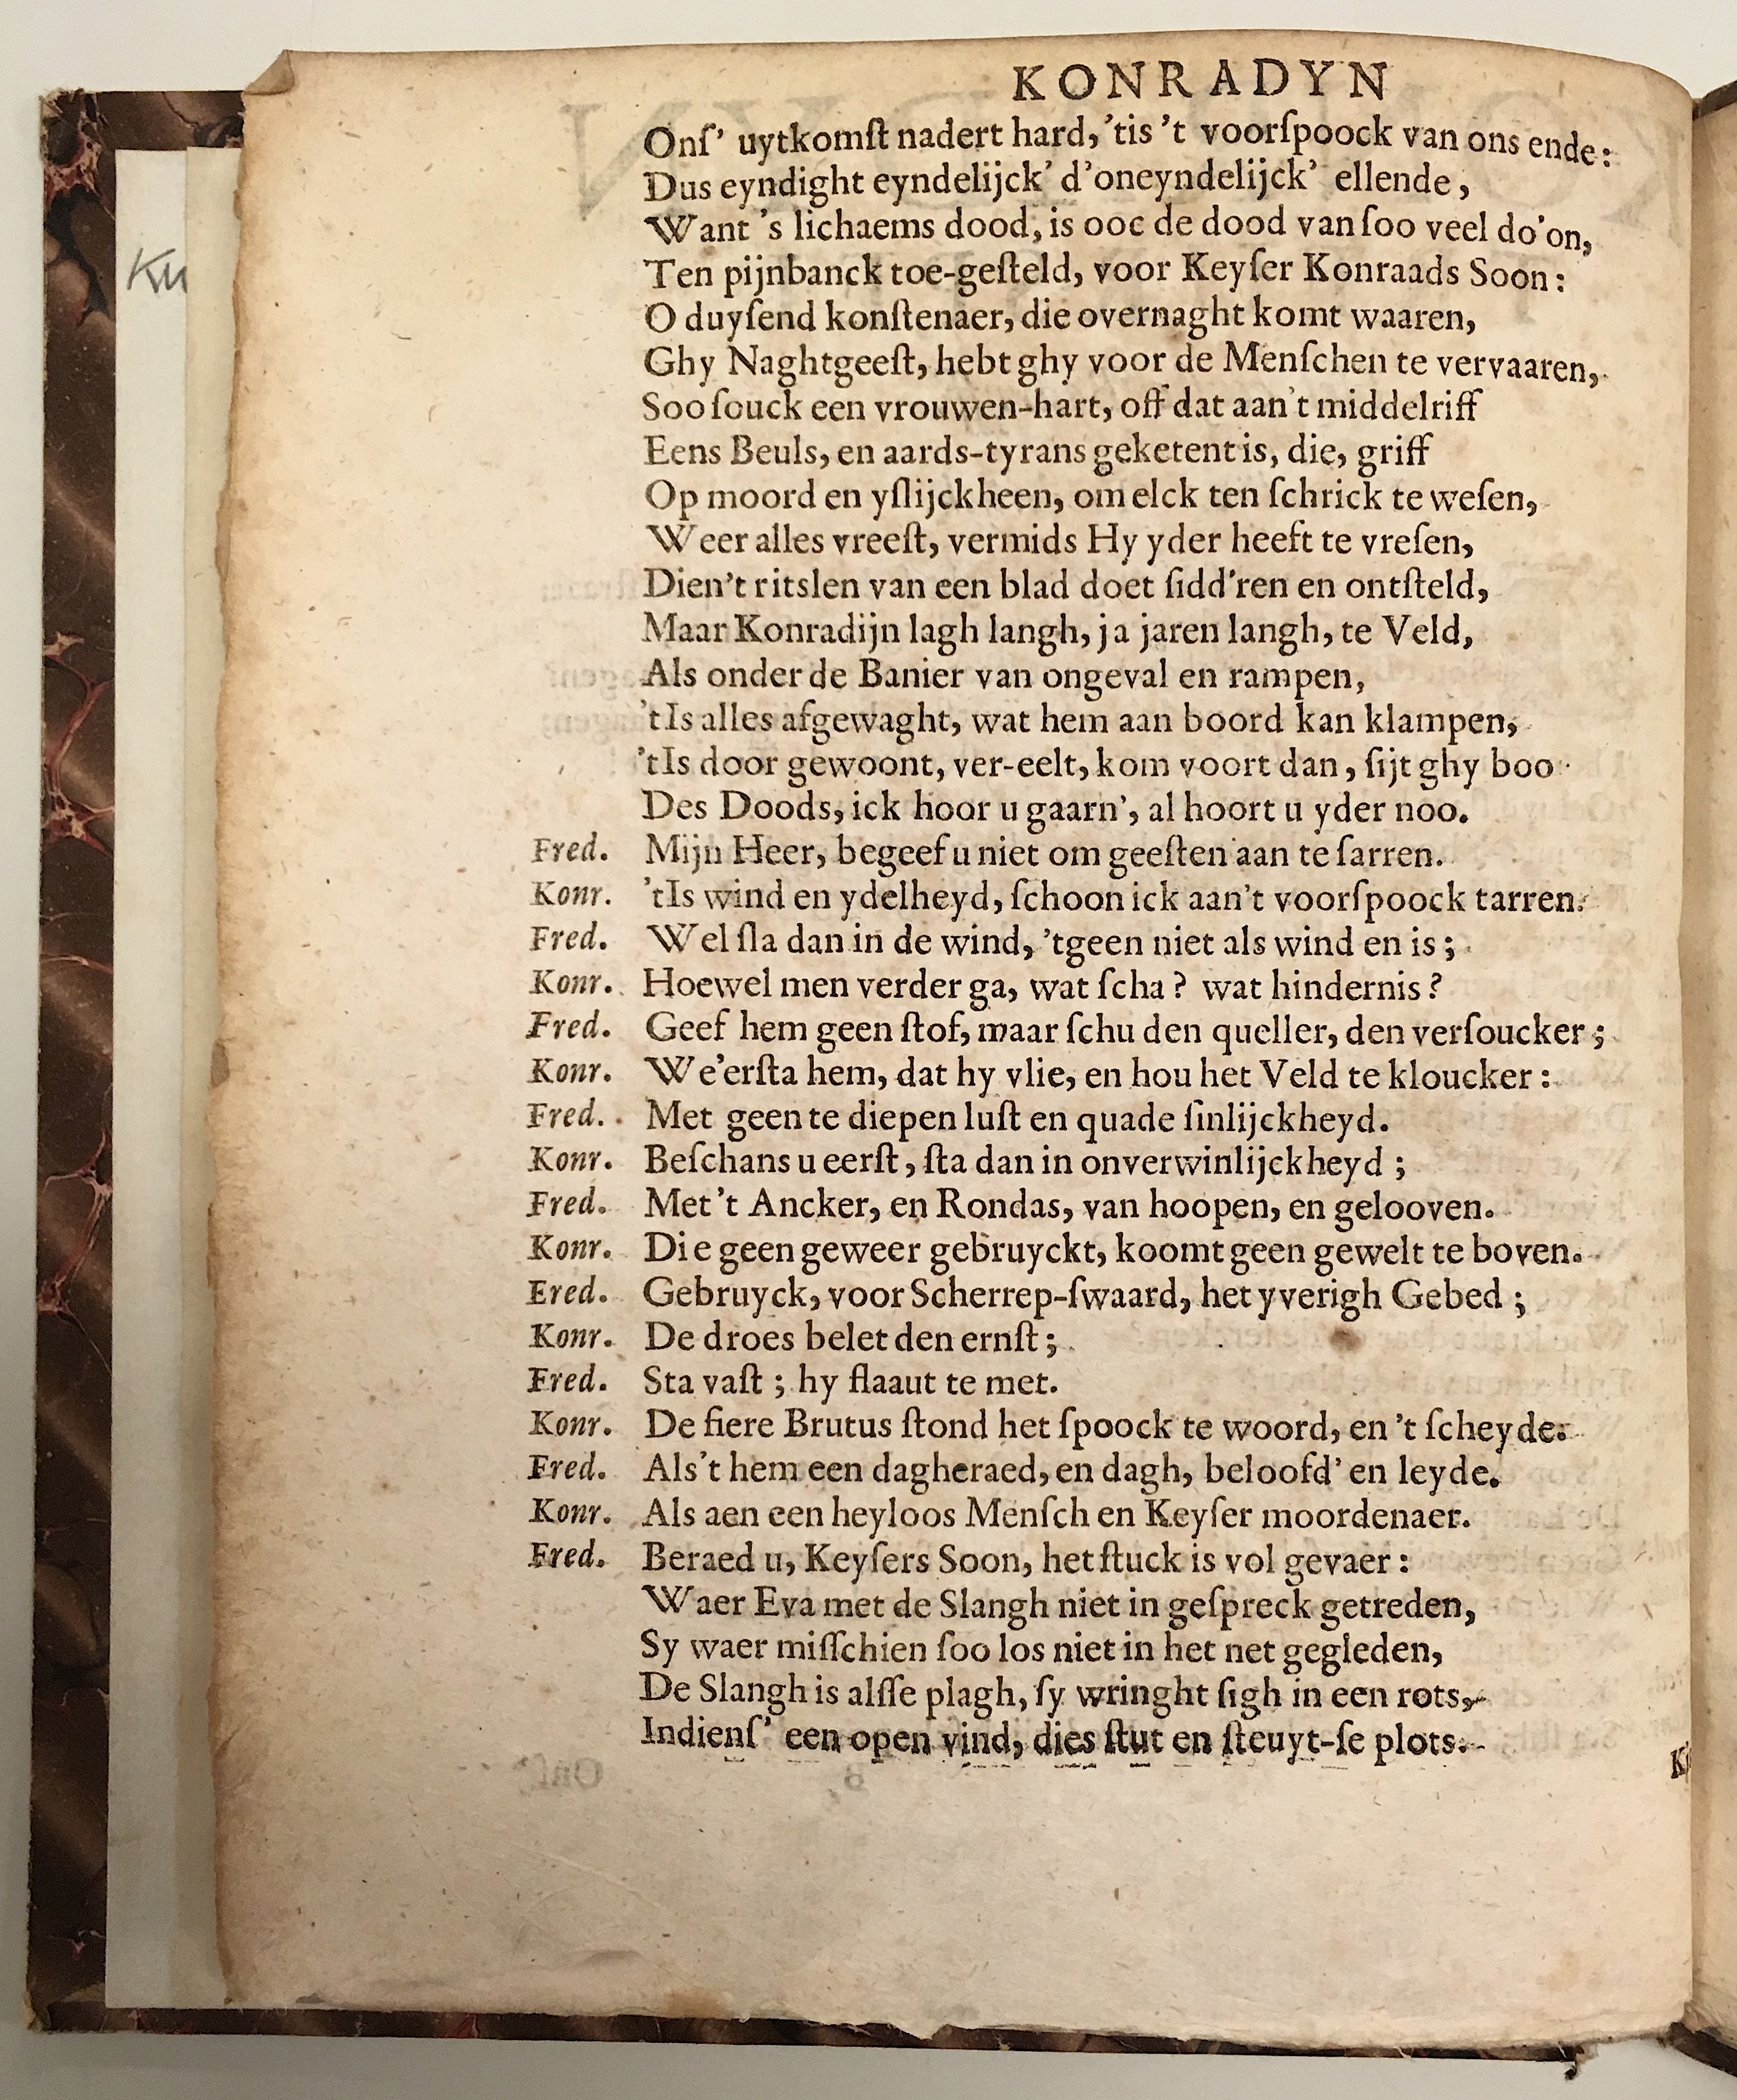 Ku
KONRADYN
Onſ' uytkomſt nadert hard, 'tis 't voorſpoock van ons ende:
Dus eyndight eyndelijck' d'oneyndelijck' ellende,
Want 's lichaems dood, is ooc de dood van ſoo veel do'on,
Ten pijnbanck toe-geſteld, voor Keyſer Konraads Soon:
O duyſend konſtenaer, die overnaght komt waaren,
Ghy Naghtgeeſt, hebt ghy voor de Menſchen te vervaaren,
Soo ſouck een vrouwen-hart, off dat aan't middelriff
Eens Beuls, en aards-tyrans geketent is, die, griff
Op moord en yſlijckheen, om elck ten ſchrick te weſen,
Weer alles vreeſt, vermids Hy yder heeft te vreſen,
Dien't ritslen van een blad doet ſidd'ren en ontſteld,
Maar Konradijn lagh langh, ja jaren langh, te Veld,
Als onder de Banier van ongeval en rampen,
'tIs alles afgewaght, wat hem aan boord kan klampen,
'tIs door gewoont, ver-eelt, kom voort dan, ſijt ghy boo
Des Doods, ick hoor u gaarn', al hoort u yder noo.
Fred. Mijn Heer, begeef u niet om geeſten aan te ſarren.
Konr. 'tIs wind en ydelheyd, ſchoon ick aan't voorſpoock tarren.
Fred. Wel ſla dan in de wind, 'tgeen niet als wind en is;
Konr. Hoewel men verder ga, wat ſcha? wat hindernis?
Fred. Geef hem geen ſtof, maar ſchu den queller, den verſoucker;
Konr. We'erſta hem, dat hy vlie, en hou het Veld te kloucker:
Fred. Met geen te diepen luſt en quade ſinlijckheyd.
Konr. Beſchans u eerſt, ſta dan in onverwinlijckheyd;
Fred. Met 't Ancker, en Rondas, van hoopen, en gelooven.
Konr. Die geen geweer gebruyckt, koomt geen gewelt te boven.
Ered. Gebruyck, voor Scherrep-ſwaard, het yverigh Gebed;
Konr. De droes belet den ernſt;
Fred. Sta vaſt; hy flaaut te met.
Konr. De fiere Brutus ſtond het ſpoock te woord, en 't ſcheyde.
Fred. Als't hem een dagheraed, en dagh, beloofd' en leyde.
Konr. Als aen een heyloos Menſch en Keyſer moordenaer.
Fred. Beraed u, Keyſers Soon, het ſtuck is vol gevaer:
Waer Eva met de Slangh niet in geſpreck getreden,
Sy waer miſſchien ſoo los niet in het net gegleden,
De Slangh is alſſe plagh, ſy wringht ſigh in een rots,
Indienſ' een open vind, dies ſtut en ſteuyt-ſe plots.